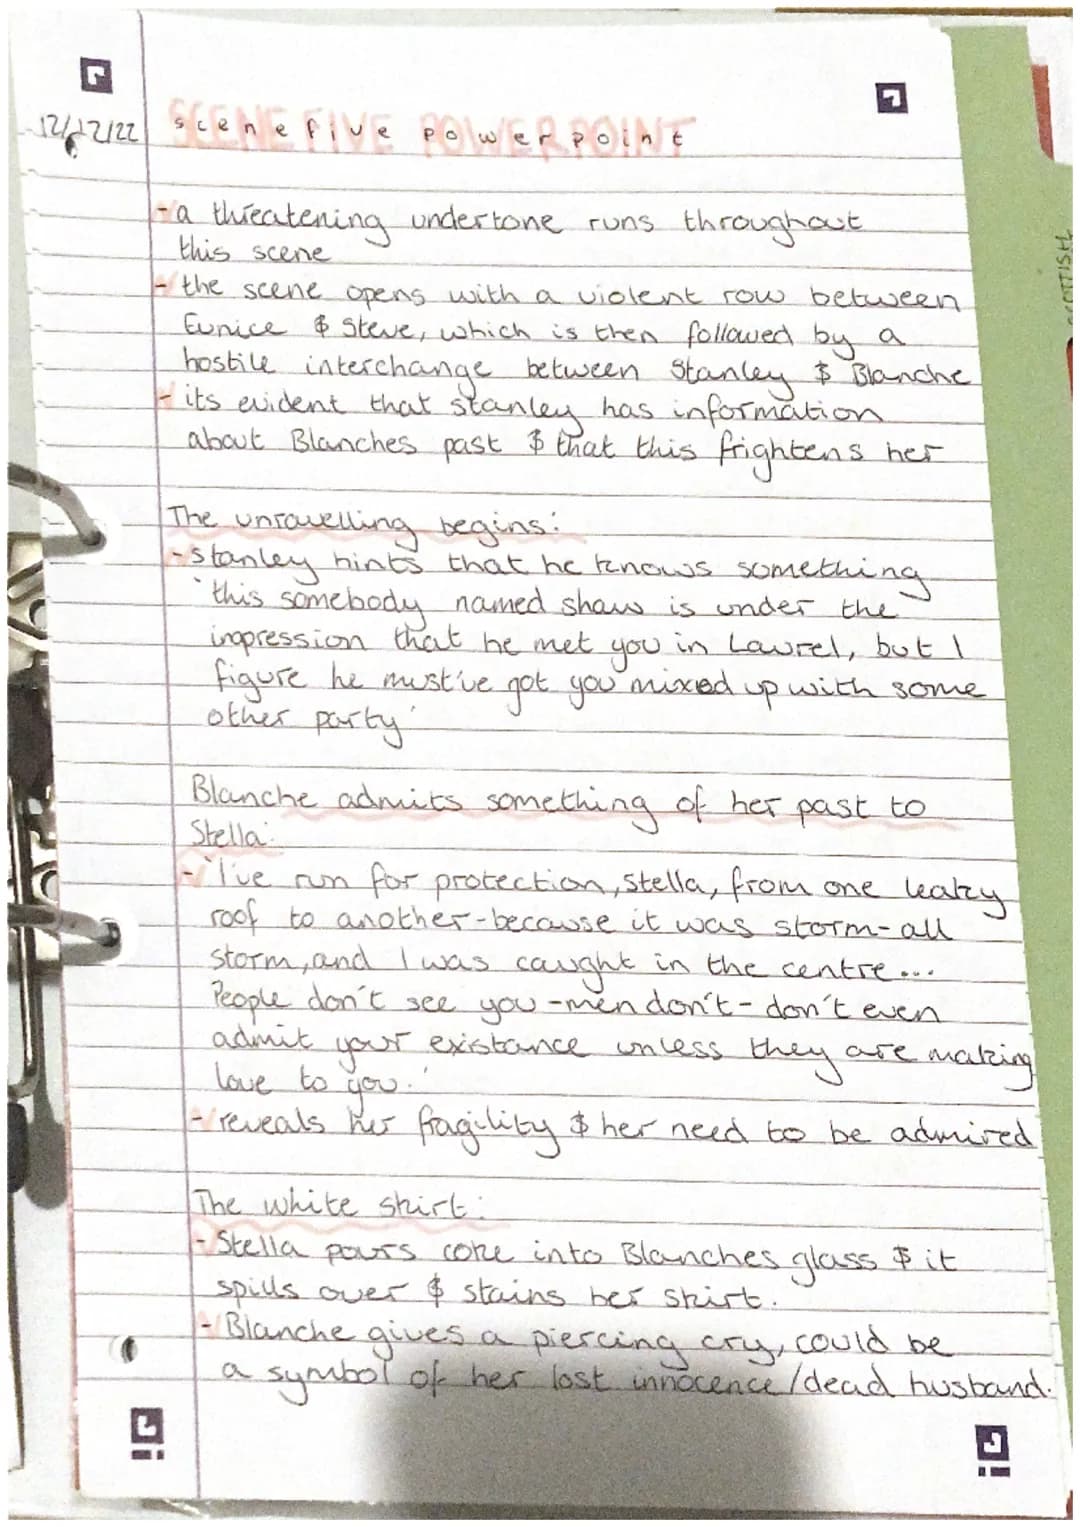 12/12/22
scene five powerpoint
-a threatening undertone runs throughout
this scene
- the scene opens with a violent row between
Eunice & Steve, which is then followed by a
hostile interchange between Stanley & Blanche
- its evident that stanley has information
about Blanches past & that this frightens her
The unravelling begins:
-stanley hints that he knows something
'this somebody named shaw is under the
impression that he met you in Laurel, but I
figure he must've got you mixed up with some
other party'
Blanche admits something of her past to
Stella:
-'I've run for protection, Stella, from one leaky
roof to another-because it was storm-all
storm, and I was caught in the centre...
People don't see you-men don't-don't even
admit your existance unless they are making
love to you.'
- reveals her fragility & her need to be admired
The white skirt:
- Stella pours coke into Blanches glass & it
spills over & stains her skirt.
- Blanche gives a piercing cry, could be
a symbol of her lost innocence/dead husband.
SCOTTISH